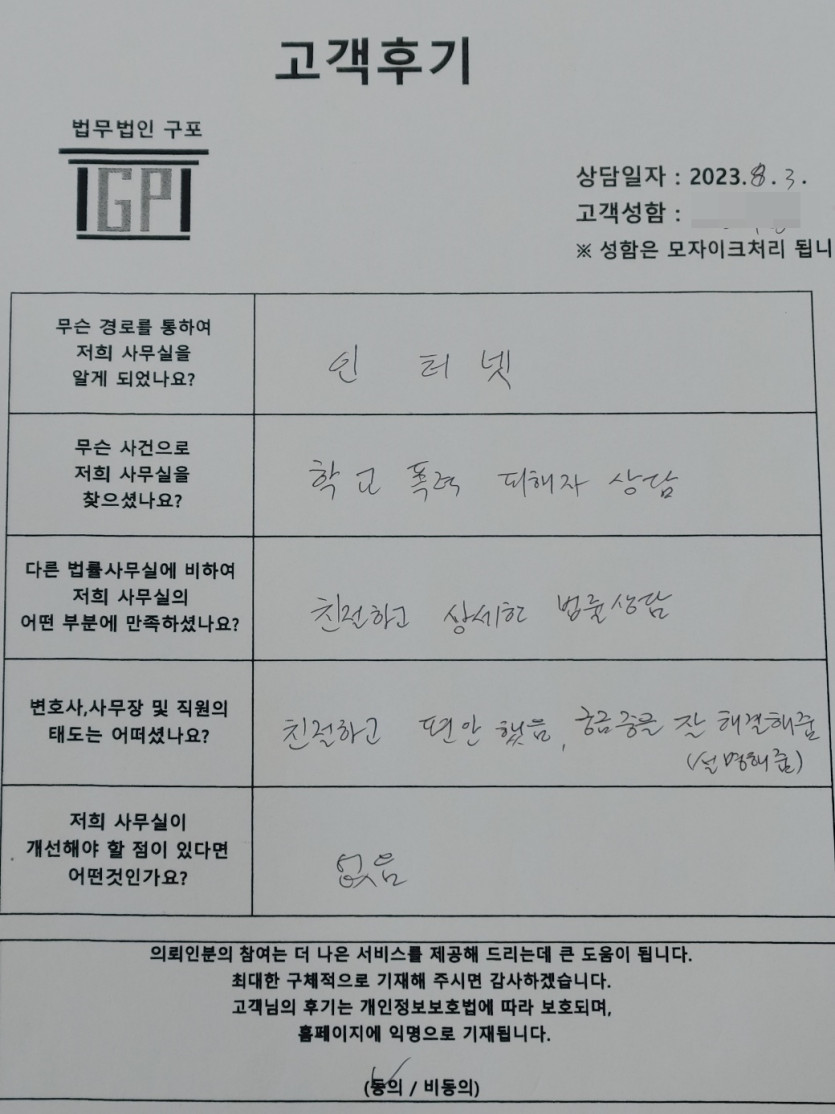 고객후기
법무법인 구포
IGPI
상담일자 : 2023.8.3.
고객성함 :
※ 성함은 모자이크처리 됩니
무슨 경로를 통하여
저희 사무실을
알게 되었나요?
인 터 넷
무슨 사건으로
저희 사무실을
찾으셨나요?
학교 폭력 피해자 상담
다른 법률사무실에 비하여
저희 사무실의
어떤 부분에 만족하셨나요?
친절하고 상세한 법률상담
변호사,사무장 및 직원의
태도는 어떠셨나요?
친절하고 편안했음, 궁금증을 잘 해결해줌
(설명해줌)
저희 사무실이
개선해야 할 점이 있다면
어떤것인가요?
없음
의뢰인분의 참여는 더 나은 서비스를 제공해 드리는데 큰 도움이 됩니다.
최대한 구체적으로 기재해 주시면 감사하겠습니다.
고객님의 후기는 개인정보보호법에 따라 보호되며,
홈페이지에 익명으로 기재됩니다.
(동의 / 비동의)